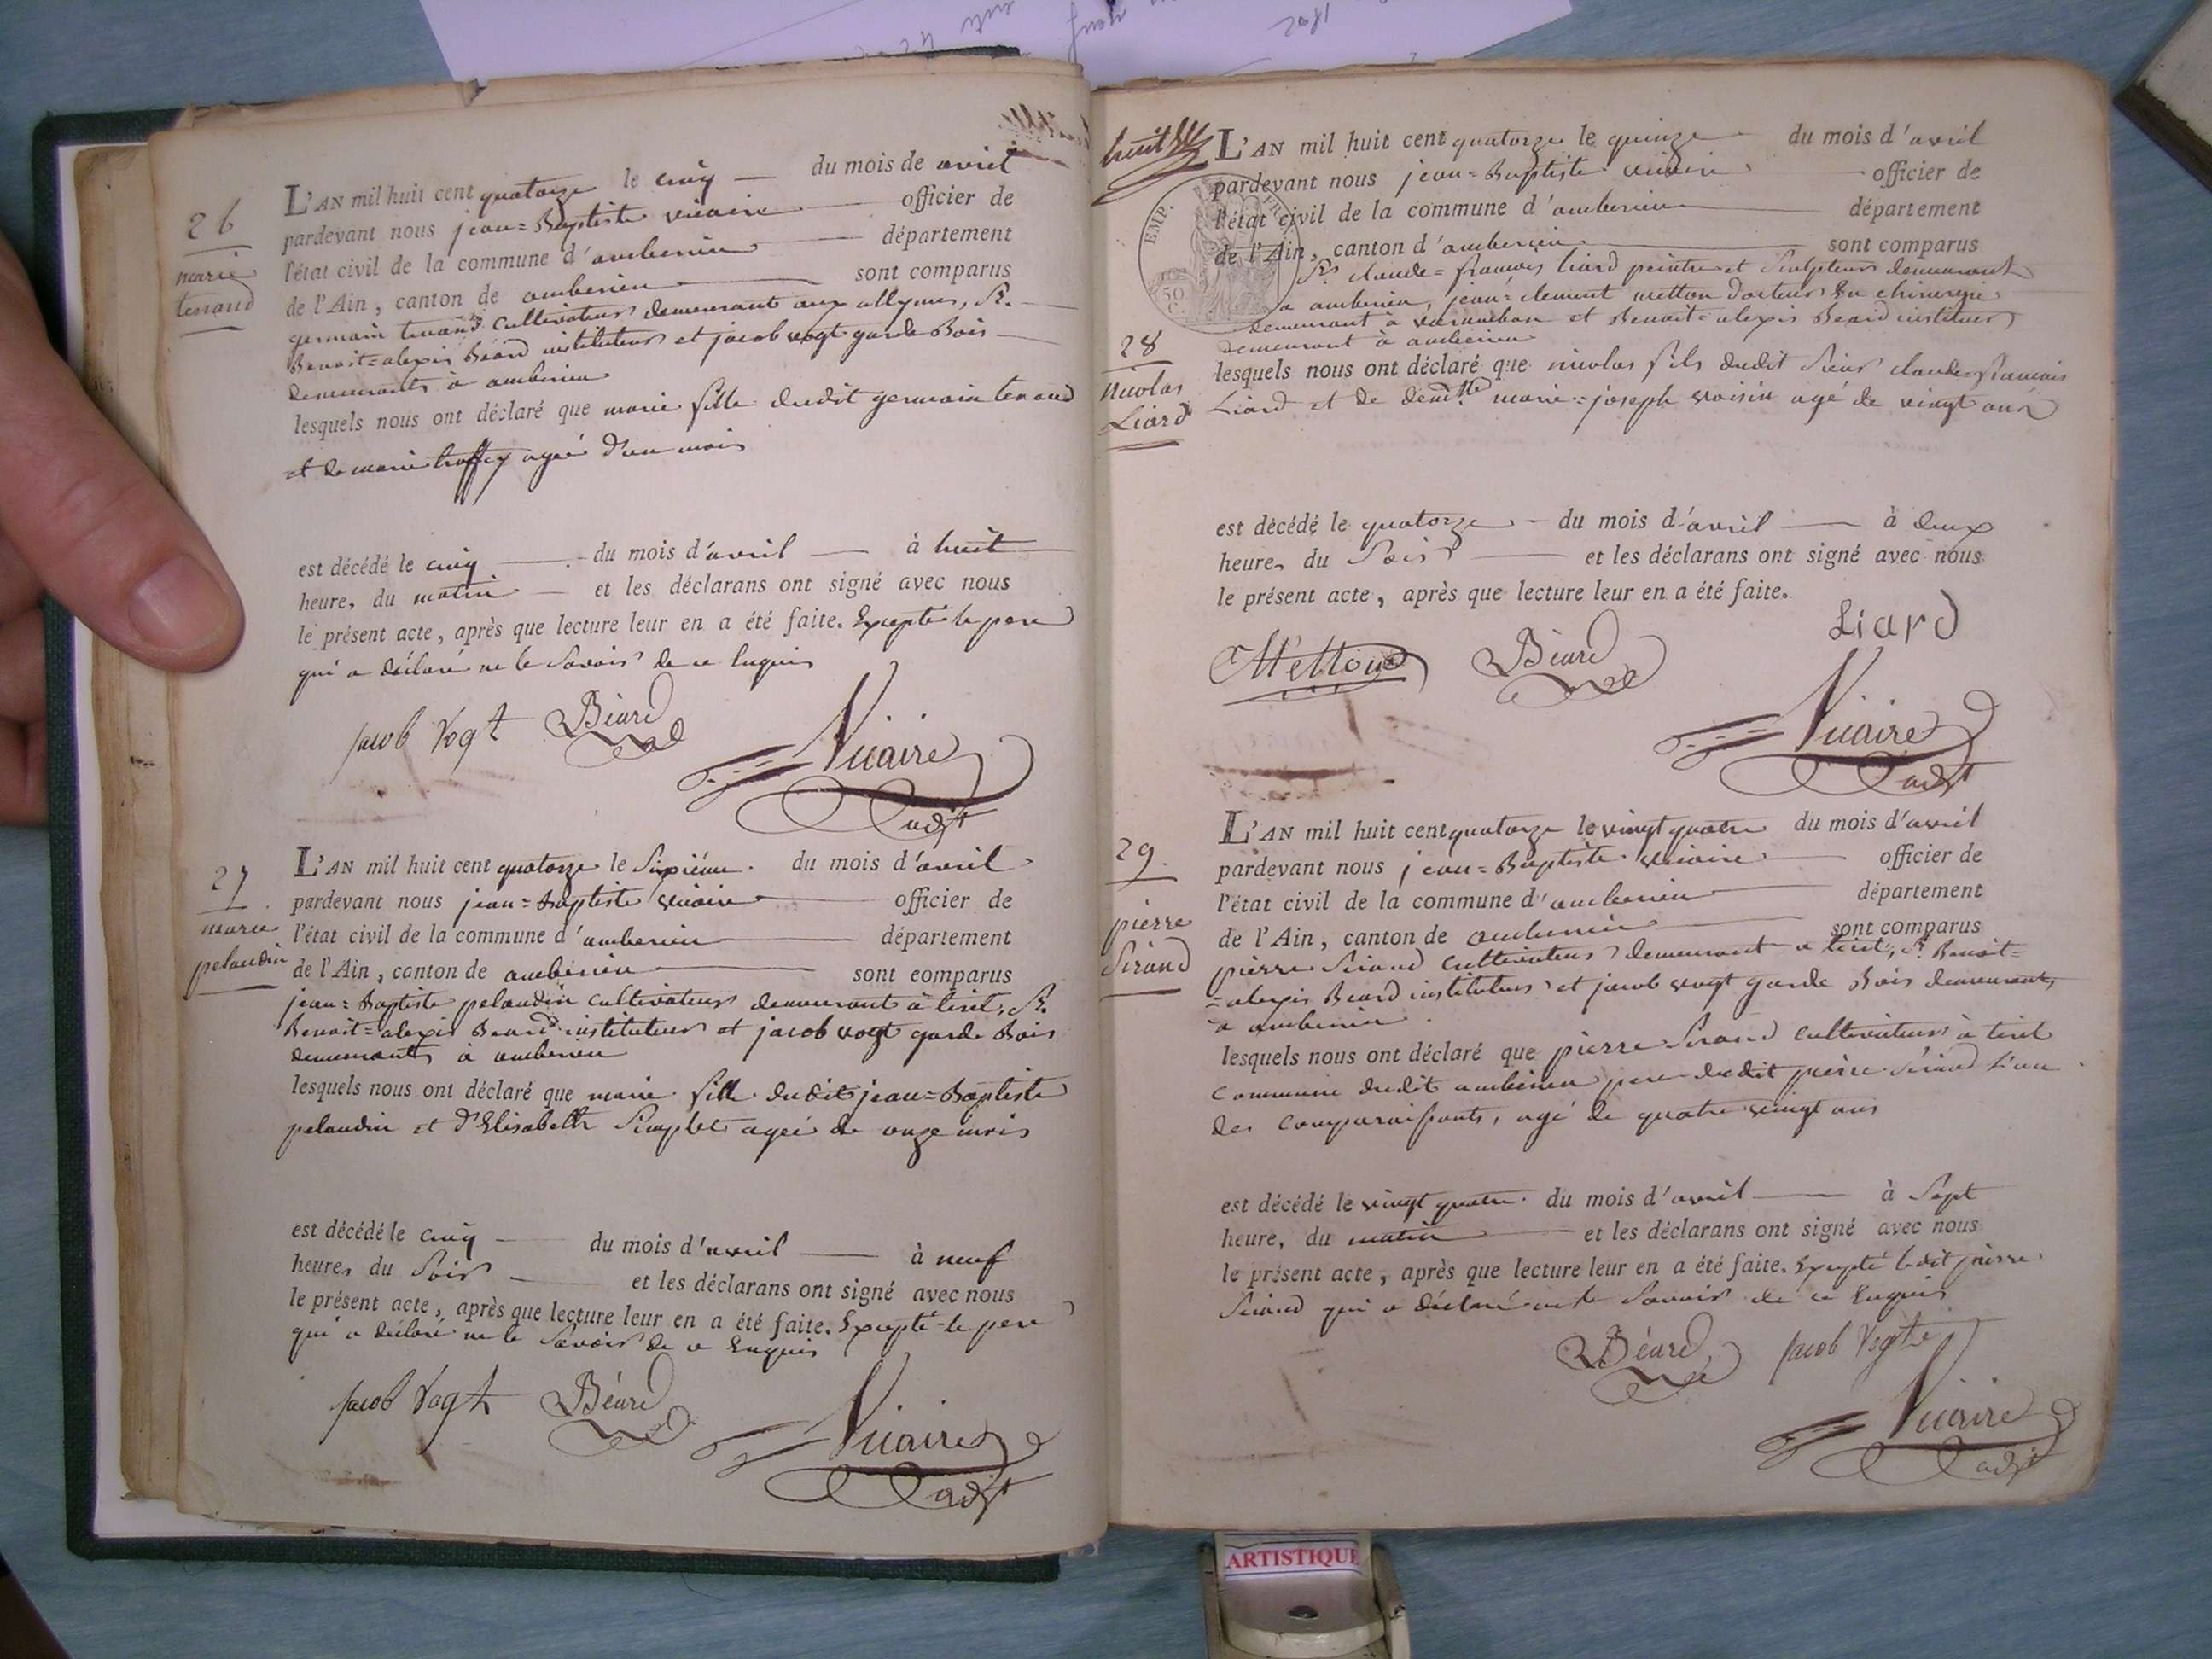 26
marie
tenand
L'AN mil huit cent quatorze le cinq du mois de avril
pardevant nous jean=Baptiste vicaire officier de
l'état civil de la commune d'amberieu département
de l'Ain, canton de amberieu sont comparus
germain tenand cultivateur demeurant aux allymes, Sr.
Benoit=alexis Béard instituteur et jacob vogt garde Bois
demeurants à amberieu
lesquels nous ont déclaré que marie fille dudit germain tenand
et de marie agée d'un mois
est décédé le cinq du mois d'avril à huit
heure, du matin et les déclarans ont signé avec nous
le présent acte, après que lecture leur en a été faite. Excepté le pere
qui a déclaré ne le savoir de ce Enquis
jacob Vogt Béard
Vicaire
adjt
27
marie
pelaudin
L'AN mil huit cent quatorze le sixiéme du mois d'avril
pardevant nous jean=Baptiste vicaire officier de
l'état civil de la commune d'amberieu département
de l'Ain, canton de amberieu sont comparus
jean=Baptiste pelaudin cultivateur demeurant à tiret, Sr.
Benoit=alexis Beard instituteur et jacob vogt garde Bois
demeurants à amberieu
lesquels nous ont déclaré que marie fille dudit jean=Baptiste
pelaudin et d'Elisabeth Simplet agée de onze mois
est décédé le cinq du mois d'avril à neuf
heures du soir et les déclarans ont signé avec nous
le présent acte, après que lecture leur en a été faite. Excepté le pere
qui a déclaré ne le savoir de ce Enquis
jacob Vogt Béard
Vicaire
adjt
huit
EMP. FR
28
nicolas
Liard
L'AN mil huit cent quatorze le quinze du mois d'avril
pardevant nous jean=Baptiste vicaire officier de
l'état civil de la commune d'amberieu département
de l'Ain, canton d'amberieu sont comparus
Srs claude=francois liard peintre et sculpteur demeurant
a amberieu, jean=clement metton docteur En chirurgie
demeurant à et Benoit=alexis Béard instituteur
demeurant à amberieu
lesquels nous ont déclaré que nicolas fils dudit sieur claude francois
Liard et de demlle marie=joseph voisin agé de vingt ans
est décédé le quatorze du mois d'avril à deux
heure, du soir et les déclarans ont signé avec nous
le présent acte, après que lecture leur en a été faite.
Liard
Metton Béard
Vicaire
adjt
29.
pierre
Sirand
L'AN mil huit cent quatorze le vingt quatre du mois d'avril
pardevant nous jean=Baptiste vicaire officier de
l'état civil de la commune d'amberieu département
de l'Ain, canton de amberieu sont comparus
pierre Sirand cultivateur demeurant a tiret, Sr. Benoit=
=alexis Beard instituteur et jacob vogt garde Bois demeurants
a amberieu
lesquels nous ont déclaré que pierre Sirand cultivateur à tiret
commune dudit amberieu pere dudit pierre Sirand l'un
des comparaissants, agé de quatre vingt ans
est décédé le vingt quatre du mois d'avril à sept
heure, du matin et les déclarans ont signé avec nous
le présent acte, après que lecture leur en a été faite. Excepté ledit pierre
Sirand qui a déclaré ne le savoir de ce Enquis
Béard jacob Vogt
Vicaire
adjt
ARTISTIQUE